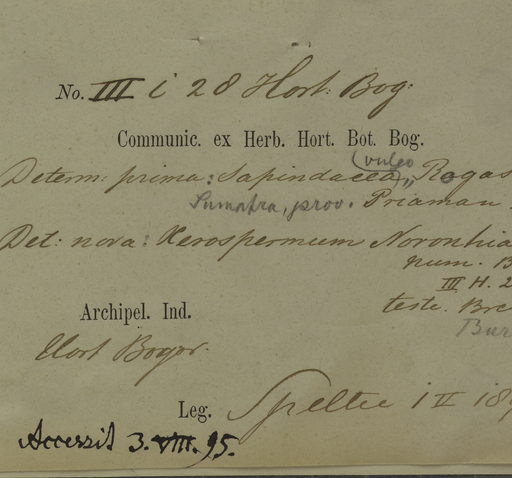 No. III i 28 Hort: Bog:
Communic. ex Herb. Hort. Bot. Bog.
(vulgo
Determ: prima: Sapindacea, „Rogas
Sumatra, prov. Priaman.
Det: nova: Xerospermum Noronhia
num. B
III H. 2
teste. Bre
Bur
Archipel. Ind.
Hort Bogor.
Leg. 1 II 189
Accessit 3. VIII. 95.